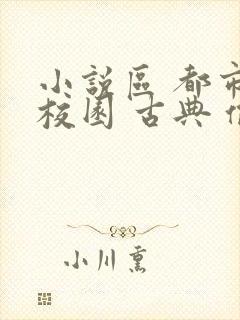 小說區 都市
校園 古典
小川熏